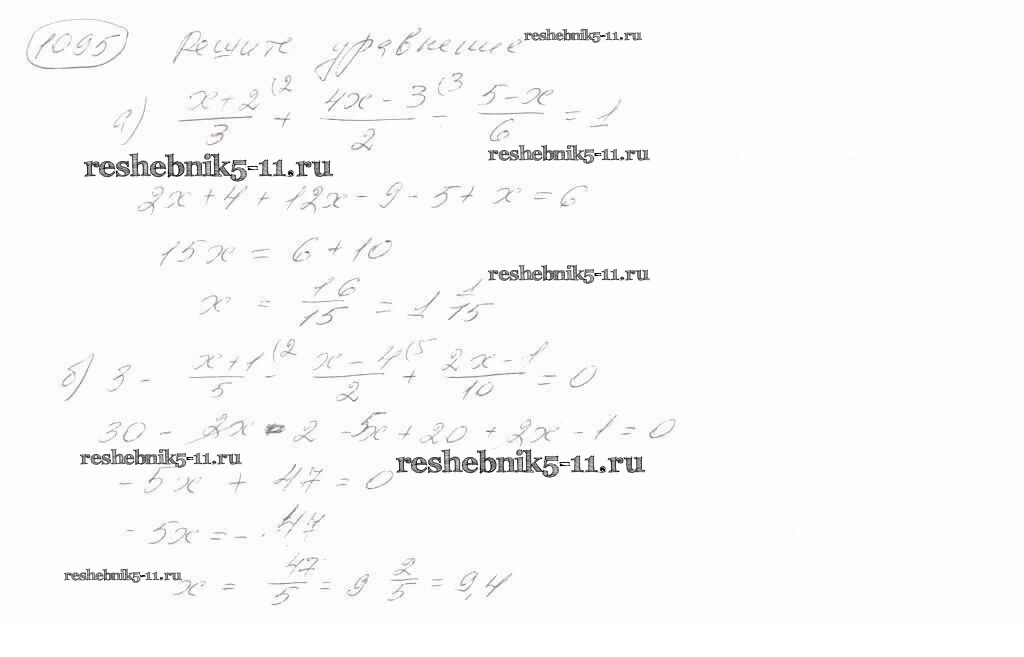 1095 Решите уравнение reshebnik5-11.ru
а) (x+2)/3 (2 + (4x-3)/2 (3 - (5-x)/6 = 1
reshebnik5-11.ru reshebnik5-11.ru
2x+4+12x-9-5+x=6
15x = 6+10
reshebnik5-11.ru
x = 16/15 = 1 1/15
б) 3 - (x+1)/5 (2 - (x-4)/2 (5 + (2x-1)/10 = 0
30 - 2x - 2 -5x+20+2x-1=0
reshebnik5-11.ru reshebnik5-11.ru
-5x + 47=0
-5x=-47
reshebnik5-11.ru
x = 47/5 = 9 2/5 = 9,4